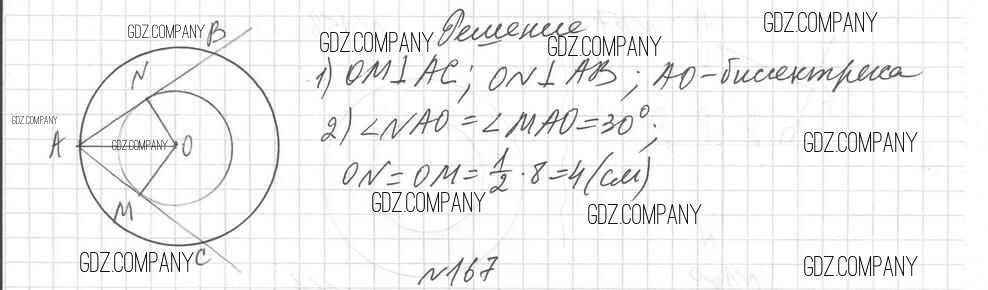 GDZ.COMPANY B Решение GDZ.COMPANY
N GDZ.COMPANY GDZ.COMPANY
1) OM⊥AC; ON⊥AB; AO-биссектриса
GDZ.COMPANY
A GDZ.COMPANY O 2) ∠NAO = ∠MAO = 30°; GDZ.COMPANY
ON = OM = 1/2 · 8 = 4 (см)
M GDZ.COMPANY GDZ.COMPANY
GDZ.COMPANY C №167 GDZ.COMPANY